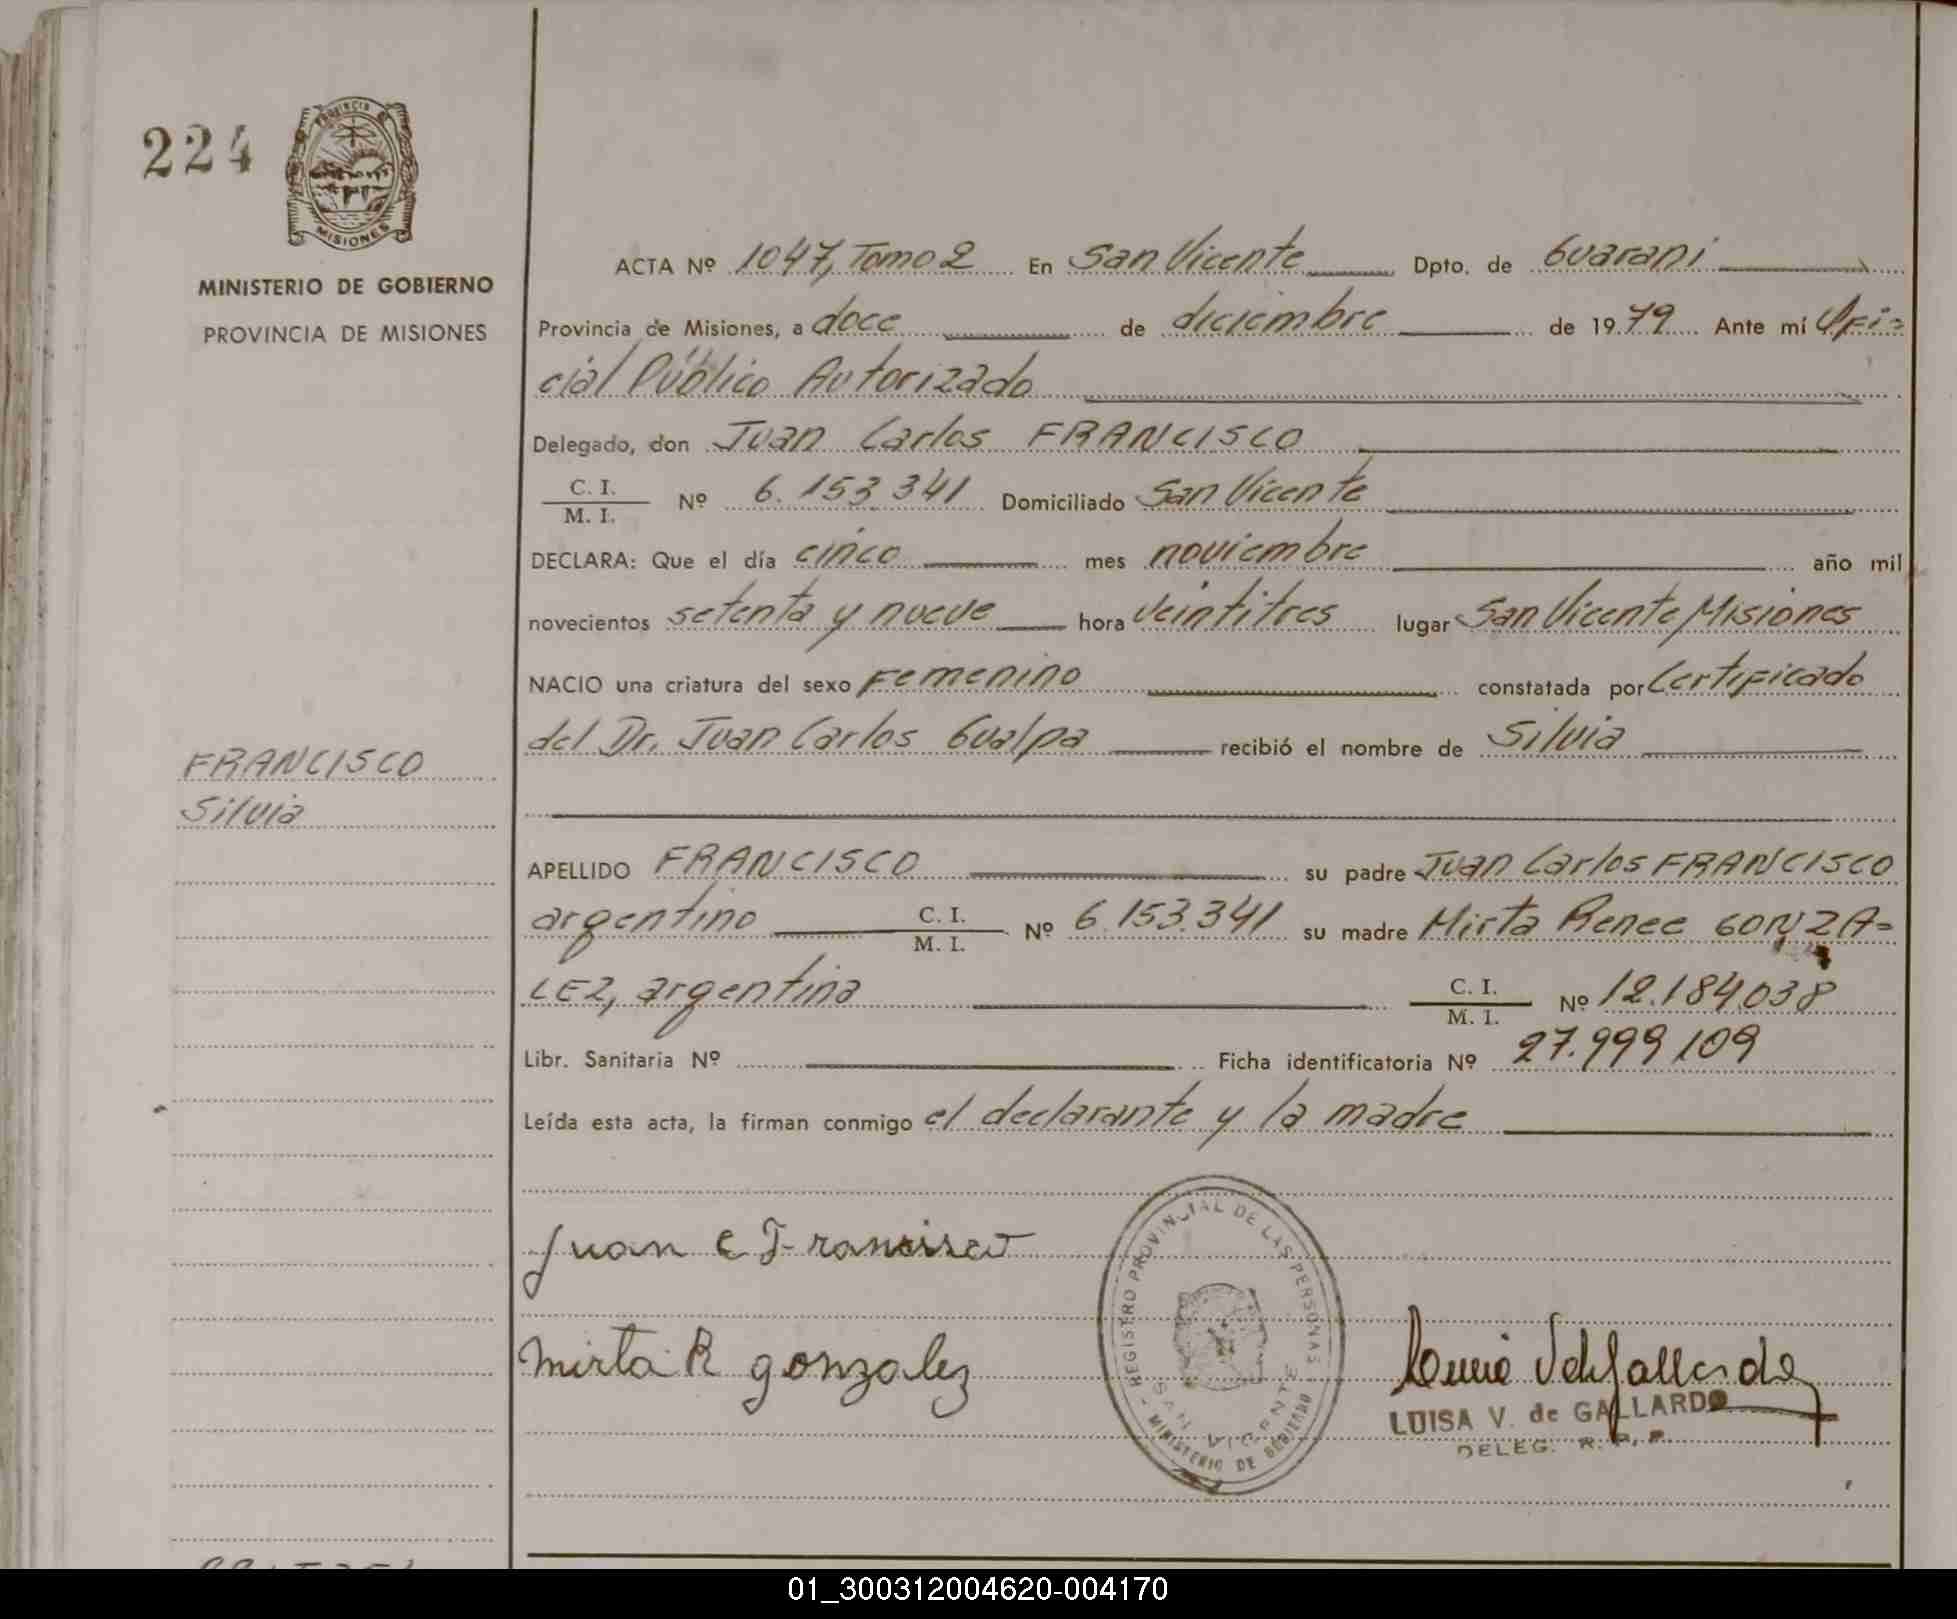 224
PROVINCIA DE
MISIONES
MINISTERIO DE GOBIERNO
PROVINCIA DE MISIONES
FRANCISCO
Silvia
ACTA Nº 1047, Tomo 2 En San Vicente Dpto. de Guarani
Provincia de Misiones, a doce de diciembre de 1979 Ante mí Ofi=
cial Público Autorizado
Delegado, don Juan Carlos FRANCISCO
C. I.
M. I. Nº 6.153.341 Domiciliado San Vicente
DECLARA: Que el día cinco mes noviembre año mil
novecientos setenta y nueve hora veintitres lugar San Vicente Misiones
NACIO una criatura del sexo Femenino constatada por Certificado
del Dr. Juan Carlos Gualpa recibió el nombre de Silvia
APELLIDO FRANCISCO su padre Juan Carlos FRANCISCO
argentino C. I.
M. I. Nº 6.153.341 su madre Mirta Renee GONZA=
LEZ, argentina C. I.
M. I. Nº 12.184.038
Libr. Sanitaria Nº Ficha identificatoria Nº 27.999.109
Leída esta acta, la firman conmigo el declarante y la madre
Juan C Francisco
Mirta R gonzalez
REGISTRO PROVINCIAL DE LAS PERSONAS
SAN VICENTE
MINISTERIO DE GOBIERNO
LUISA V. de GALLARDO
DELEG. R. P. P.
01_300312004620-004170